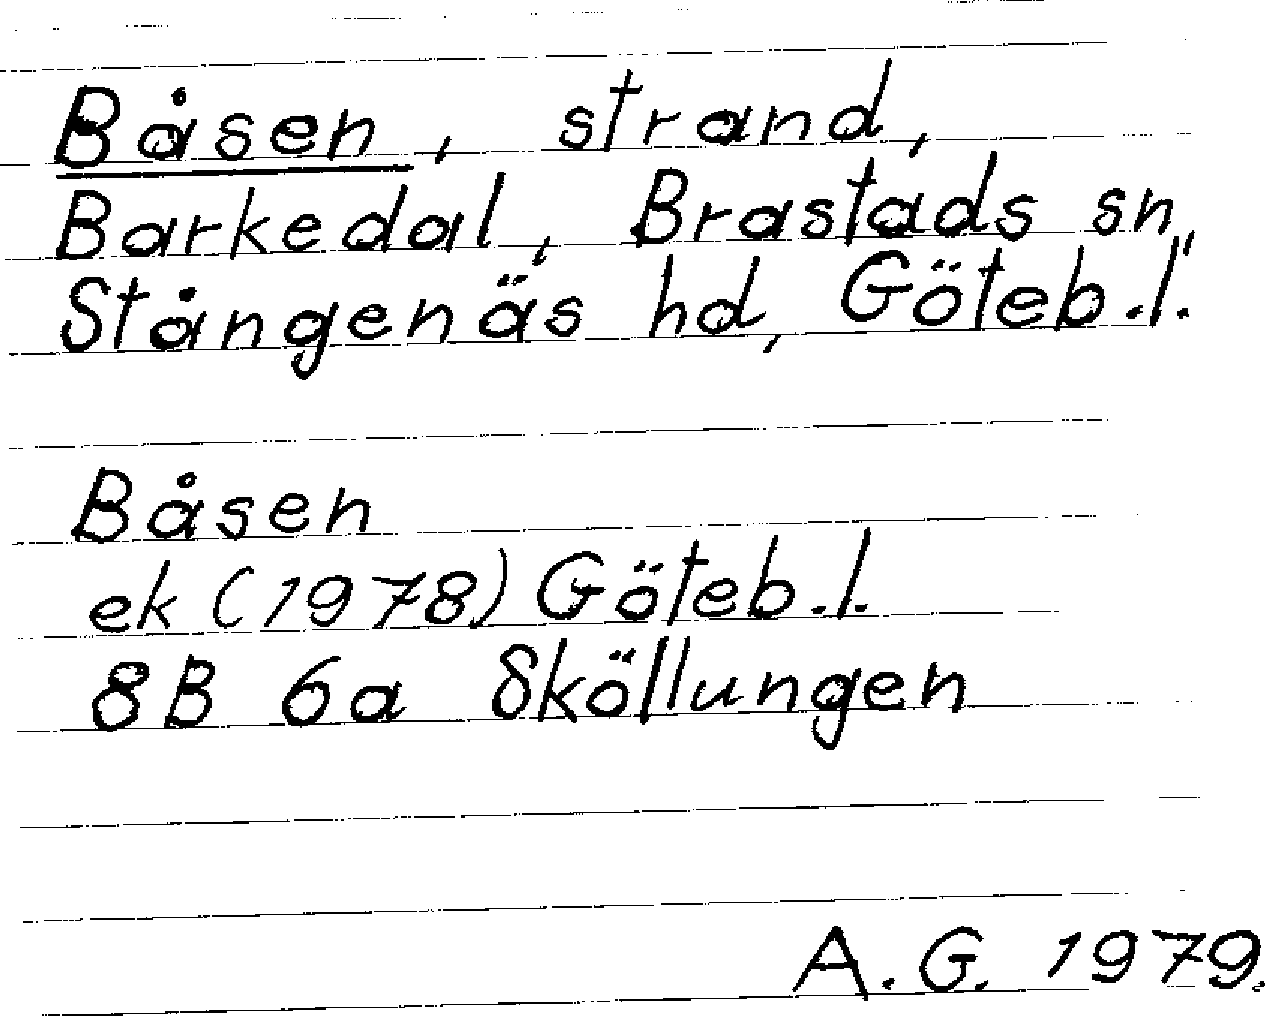 Båsen, strand,
Barkedal, Brastads sn,
Stångenäs hd, Göteb.l.
Båsen
ek (1978) Göteb.l.
8B 6a Sköllungen
A.G. 1979.